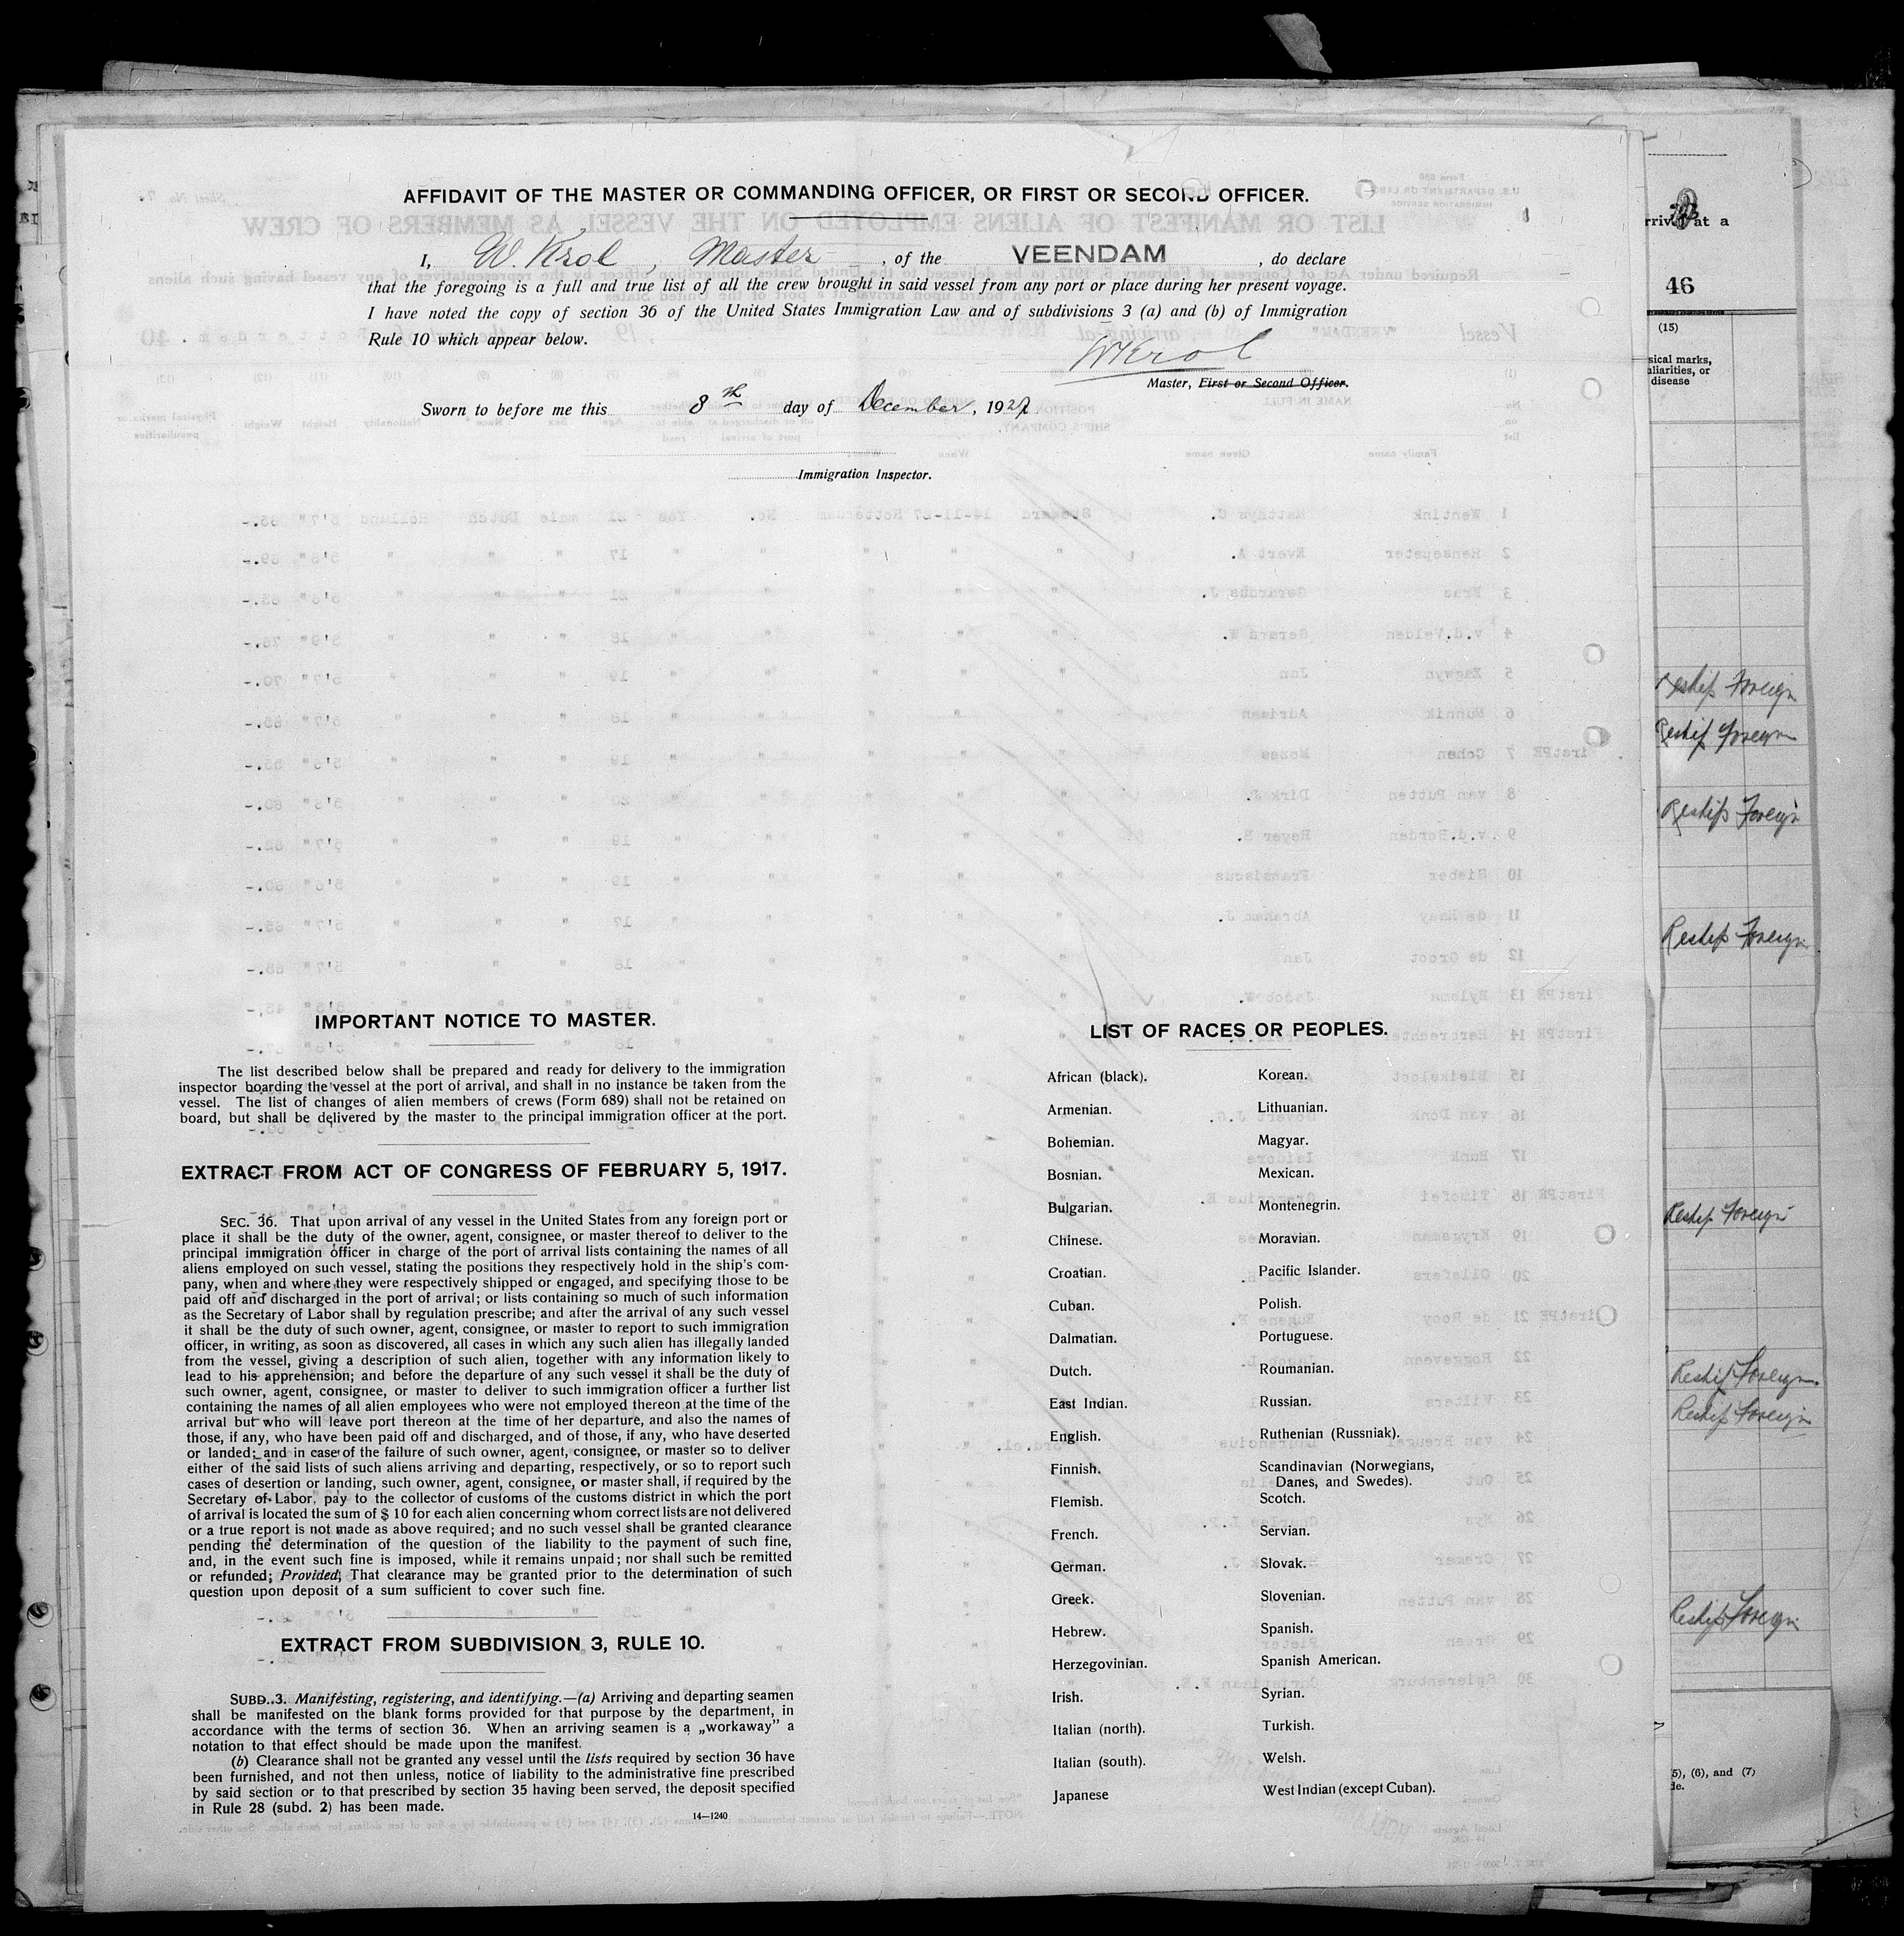 AFFIDAVIT OF THE MASTER OR COMMANDING OFFICER, OR FIRST OR SECOND OFFICER.
I, W. Krol, Master, of the VEENDAM, do declare
that the foregoing is a full and true list of all the crew brought in said vessel from any port or place during her present voyage.
I have noted the copy of section 36 of the United States Immigration Law and of subdivisions 3 (a) and (b) of Immigration
Rule 10 which appear below.
WKrol
Master, First or Second Officer.
Sworn to before me this 8th day of December, 1927
Immigration Inspector.
IMPORTANT NOTICE TO MASTER.
The list described below shall be prepared and ready for delivery to the immigration
inspector boarding the vessel at the port of arrival, and shall in no instance be taken from the
vessel. The list of changes of alien members of crews (Form 689) shall not be retained on
board, but shall be delivered by the master to the principal immigration officer at the port.
EXTRACT FROM ACT OF CONGRESS OF FEBRUARY 5, 1917.
SEC. 36. That upon arrival of any vessel in the United States from any foreign port or
place it shall be the duty of the owner, agent, consignee, or master thereof to deliver to the
principal immigration officer in charge of the port of arrival lists containing the names of all
aliens employed on such vessel, stating the positions they respectively hold in the ship's com-
pany, when and where they were respectively shipped or engaged, and specifying those to be
paid off and discharged in the port of arrival; or lists containing so much of such information
as the Secretary of Labor shall by regulation prescribe; and after the arrival of any such vessel
it shall be the duty of such owner, agent, consignee, or master to report to such immigration
officer, in writing, as soon as discovered, all cases in which any such alien has illegally landed
from the vessel, giving a description of such alien, together with any information likely to
lead to his apprehension; and before the departure of any such vessel it shall be the duty of
such owner, agent, consignee, or master to deliver to such immigration officer a further list
containing the names of all alien employees who were not employed thereon at the time of the
arrival but who will leave port thereon at the time of her departure, and also the names of
those, if any, who have been paid off and discharged, and of those, if any, who have deserted
or landed; and in case of the failure of such owner, agent, consignee, or master so to deliver
either of the said lists of such aliens arriving and departing, respectively, or so to report such
cases of desertion or landing, such owner, agent, consignee, or master shall, if required by the
Secretary of Labor, pay to the collector of customs of the customs district in which the port
of arrival is located the sum of $ 10 for each alien concerning whom correct lists are not delivered
or a true report is not made as above required; and no such vessel shall be granted clearance
pending the determination of the question of the liability to the payment of such fine,
and, in the event such fine is imposed, while it remains unpaid; nor shall such be remitted
or refunded; Provided, That clearance may be granted prior to the determination of such
question upon deposit of a sum sufficient to cover such fine.
EXTRACT FROM SUBDIVISION 3, RULE 10.
SUBD. 3. Manifesting, registering, and identifying.—(a) Arriving and departing seamen
shall be manifested on the blank forms provided for that purpose by the department, in
accordance with the terms of section 36. When an arriving seamen is a „workaway” a
notation to that effect should be made upon the manifest.
(b) Clearance shall not be granted any vessel until the lists required by section 36 have
been furnished, and not then unless, notice of liability to the administrative fine prescribed
by said section or to that prescribed by section 35 having been served, the deposit specified
in Rule 28 (subd. 2) has been made.
14—1240
LIST OF RACES OR PEOPLES.
African (black).
Armenian.
Bohemian.
Bosnian.
Bulgarian.
Chinese.
Croatian.
Cuban.
Dalmatian.
Dutch.
East Indian.
English.
Finnish.
Flemish.
French.
German.
Greek.
Hebrew.
Herzegovinian.
Irish.
Italian (north).
Italian (south).
Japanese
Korean.
Lithuanian.
Magyar.
Mexican.
Montenegrin.
Moravian.
Pacific Islander.
Polish.
Portuguese.
Roumanian.
Russian.
Ruthenian (Russniak).
Scandinavian (Norwegians,
Danes, and Swedes).
Scotch.
Servian.
Slovak.
Slovenian.
Spanish.
Spanish American.
Syrian.
Turkish.
Welsh.
West Indian (except Cuban).
at a
46
(15)
marks,
or
disease
Reship Foreign
Reship Foreign
Reship Foreign
Reship Foreign
Reship Foreign
Reship Foreign
Reship Foreign
Reship Foreign
(6), and (7)